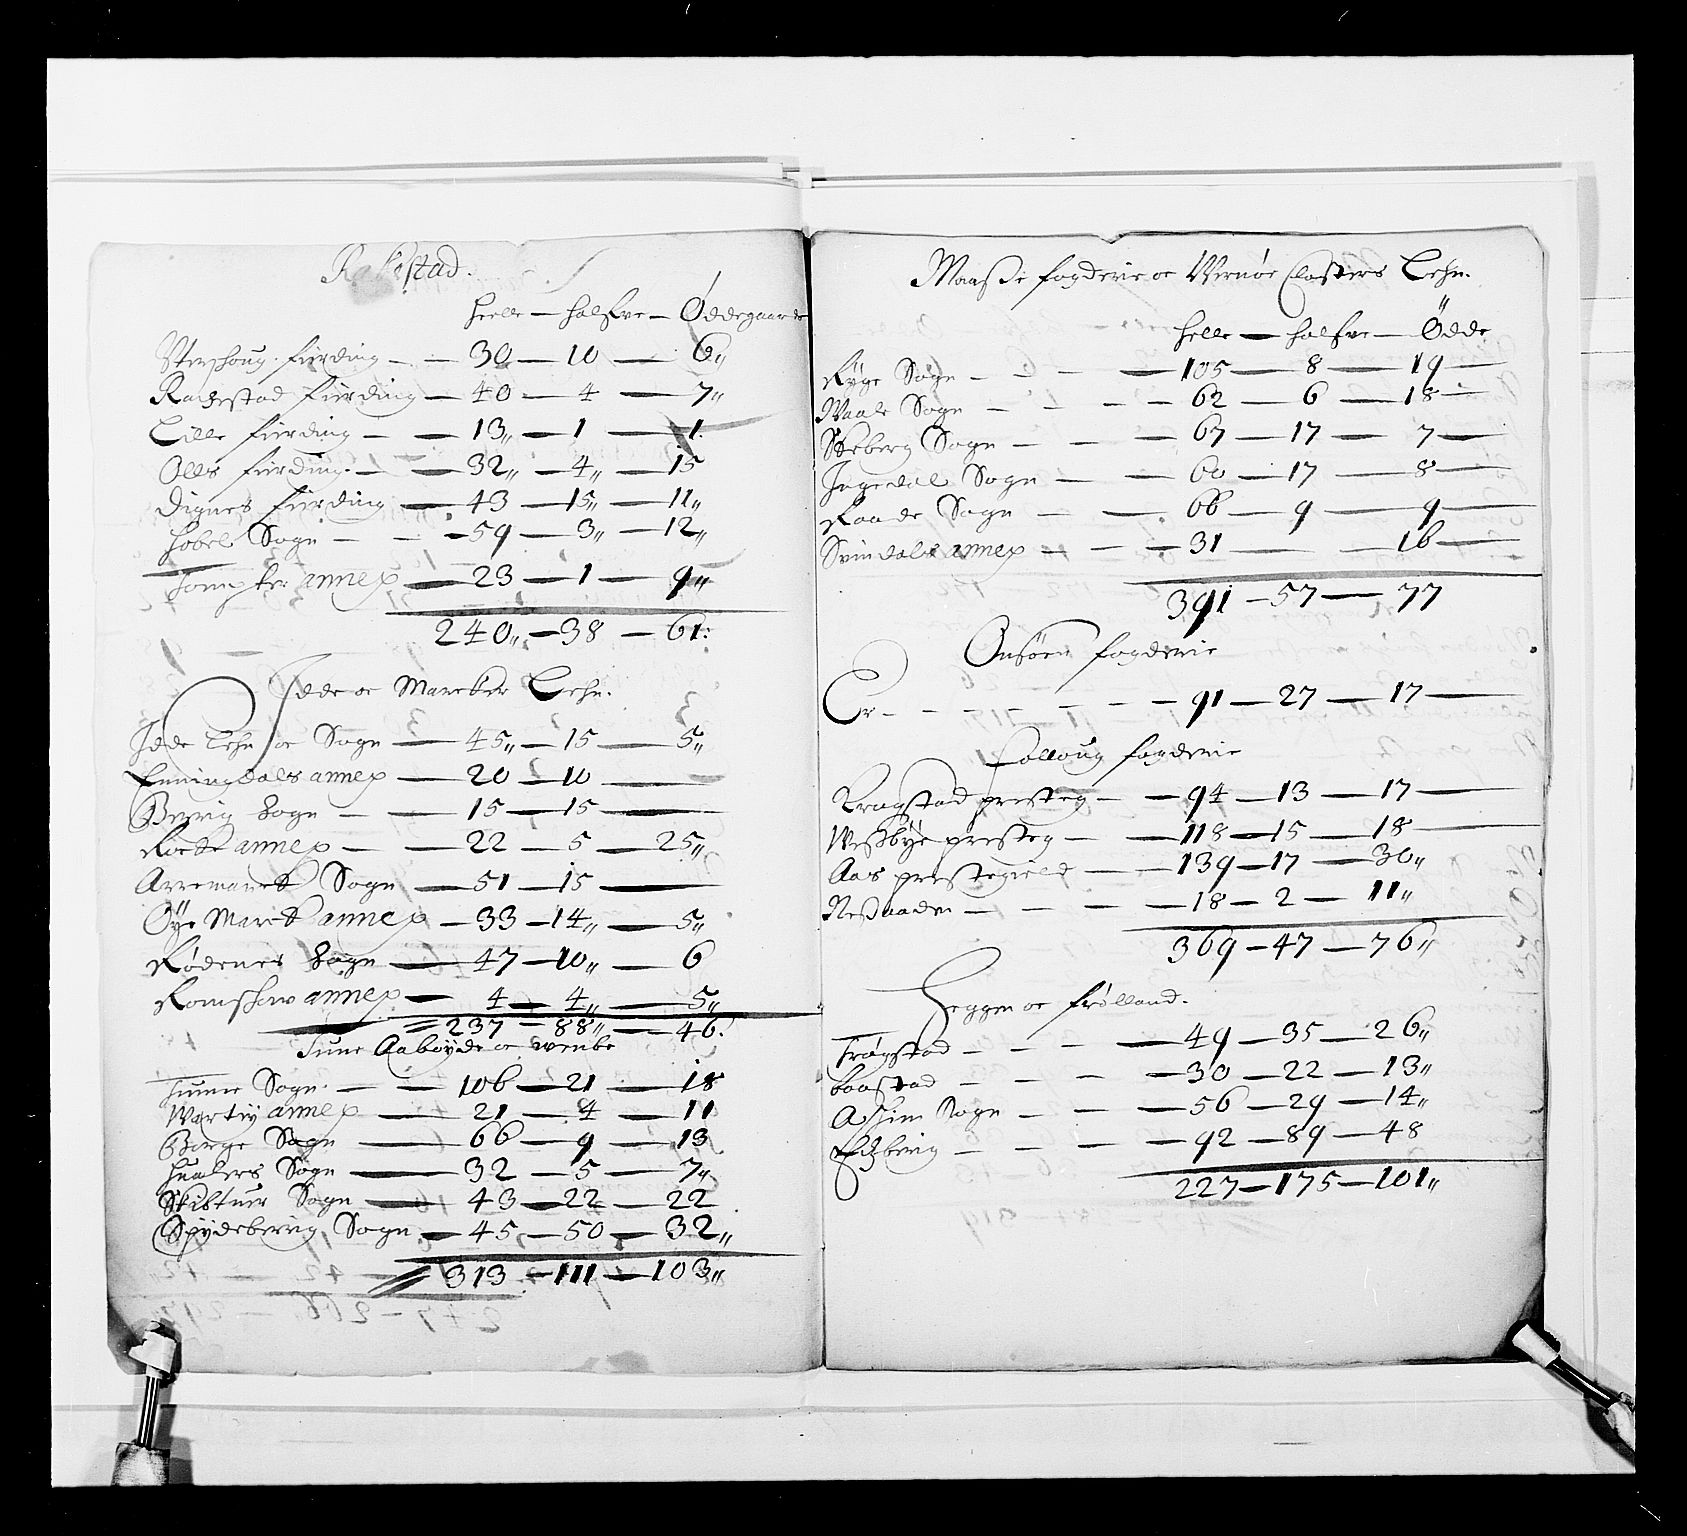 Rakestad.
heelle — halfve — Øddegaarde
Stershoug fierding — 30 — 10 — 6„
Rackestad fierding — 40 — 4 — 7„
Lille fierding — 13„ — 1 — 1.
Olls fierding — 32„ — 4„ — 15
Dignes fierding — 43 — 15„ — 11„
Hobel Sogn — 59 — 3„ — 12„
Tompter annex — 23 — 1 — 9„
240„ — 38 — 61:
Idde oc Marcker Lehn.
Idde Lehn oc Sogn — 45„ — 15 — 5„
Enningdals annex — 20 — 10 —
Berrig Sogn — 15 — 15 —
Rocke annex — 22 — 5 — 25„
Arremarck Sogn — 51 — 15 —
Øye Marck annex — 33 — 14„ — 5„
Rødenes Sogn — 47 — 10„ — 6
Romschow annex — 4 — 4„ — 5„
237 — 88„ — 46.
Tune Aabøyde oc
Tune Sogn — 106 — 21 — 18
Vartiy annex — 21 — 4 — 11
Borge Sogn — 66 — 9 — 13
Hualers Sogn — 32 — 5 — 7„
Skibtuer Sogn — 43 — 22 — 22
Spydeberrig Sogn — 45 — 50 — 32„
313 — 111 — 103„
Maasse fogderie oc Vernøe Closters Lehn.
helle — halfve — Ödde
Ryge Sogn — 105 — 8 — 19
Vaale Sogn — 62 — 6 — 18
Skeberg Sogn — 67 — 17 — 7
Ingedal Sogn — 60 — 17 — 8
Raade Sogn — 66 — 9 — 9
Svindals annex — 31 — 16
391 — 57 — 77
Onsøen fogderie
Er — 91 — 27 — 17
Folloug fogderie
Kragstad presteg — 94 — 13 — 17
Vestbye presteg — 118 — 15 — 18
Aas prestegield — 139 — 17 — 30„
Nessodden — 18 — 2 — 11„
369 — 47 — 76„
Heggen oc Frølland.
Trøgstad — 49 — 35 — 26„
Baastad — 30 — 22 — 13„
Aschim Sogn — 56 — 29 — 14„
Edzberig — 92 — 89 — 48
227 — 175 — 101„